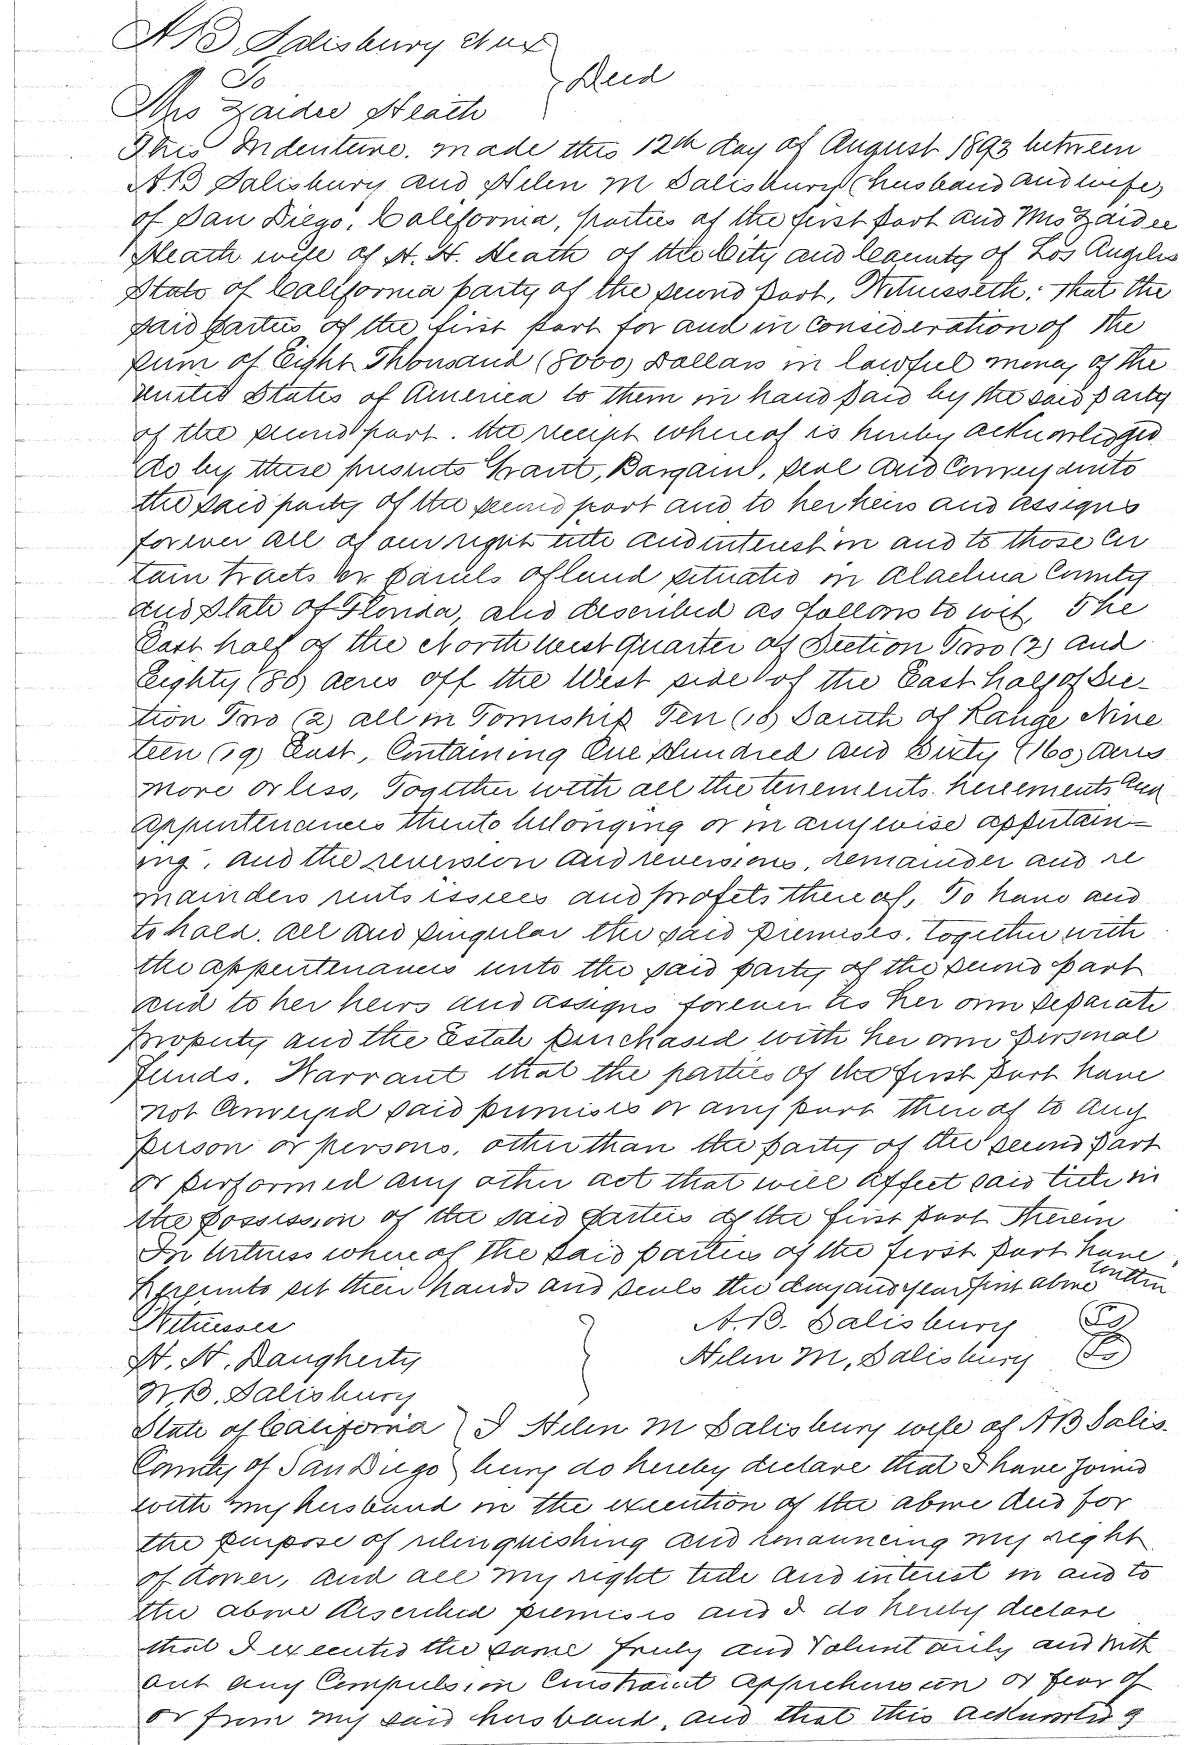 A B Salisbury et ux
To
Deed
Mrs Zaidee Heath
This Indenture. made this 12th day of August 1893 between
A B Salisbury and Helen M Salisbury (husband and wife)
of San Diego, California, parties of the first part and Mrs Zaidee
Heath wife of H. H. Heath of the City and County of Los Angeles
State of California party of the second part, Witnesseth: that the
said parties of the first part for and in consideration of the
sum of Eight Thousand (8000) Dollars in lawful money of the
United States of America to them in hand paid by the said party
of the second part. the receipt whereof is hereby acknowledged
do by these presents Grant, Bargain, sell and Convey unto
the said party of the second part and to her heirs and assigns
forever all of our right title and interest in and to those Cer
tain tracts or parcels of land situated in Alachua County
and State of Florida, and described as follows to wit, The
East half of the North West quarter of Section Two (2) and
Eighty (80) acres off the West side of the East half of Sec-
tion Two (2) all in Township Ten (10) South of Range Nine
teen (19) East, Containing One Hundred and Sixty (160) acres
more or less, Together with all the tenements hereements and
appurtenances thereto belonging or in anywise appertain-
ing, and the reversion and reversions, remainder and re
mainders rents issues and profits thereof, To have and
to hold. all and singular the said premises. together with
the appurtenances unto the said party of the second part
and to her heirs and assigns forever as her own separate
property and the Estate purchased with her own personal
funds. Warrant that the parties of the first part have
not Conveyed said premises or any part thereof to any
person or persons, other than the party of the second part
or performed any other act that will affect said title in
the possession of the said parties of the first part therein
In Witness whereof the said parties of the first part have
hereunto set their hands and seals the day and year first above written
Witnesses
A. B. Salisbury Ls
H. H. Daugherty
Helen M, Salisbury Ls
W. B. Salisbury
State of California } I Helen M Salisbury wife of A B Salis-
County of San Diego } bury do hereby declare that I have joined
with my husband in the execution of the above deed for
the purpose of relinquishing and renouncing my right
of dower, and all my right title and interest in and to
the above described premises and I do hereby declare
that I executed the same freely and voluntarily and with
out any Compulsion Constraint apprehension or fear of
or from my said husband, and that this acknowledg